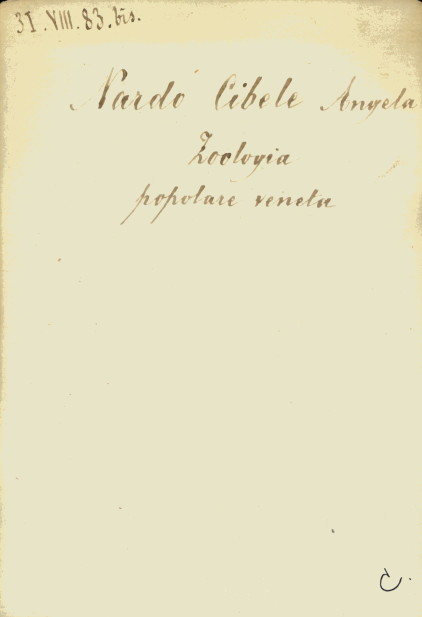 31.VIII.83.bis.
Nardo Cibele Angela
Zoologia
popolare veneta
C.